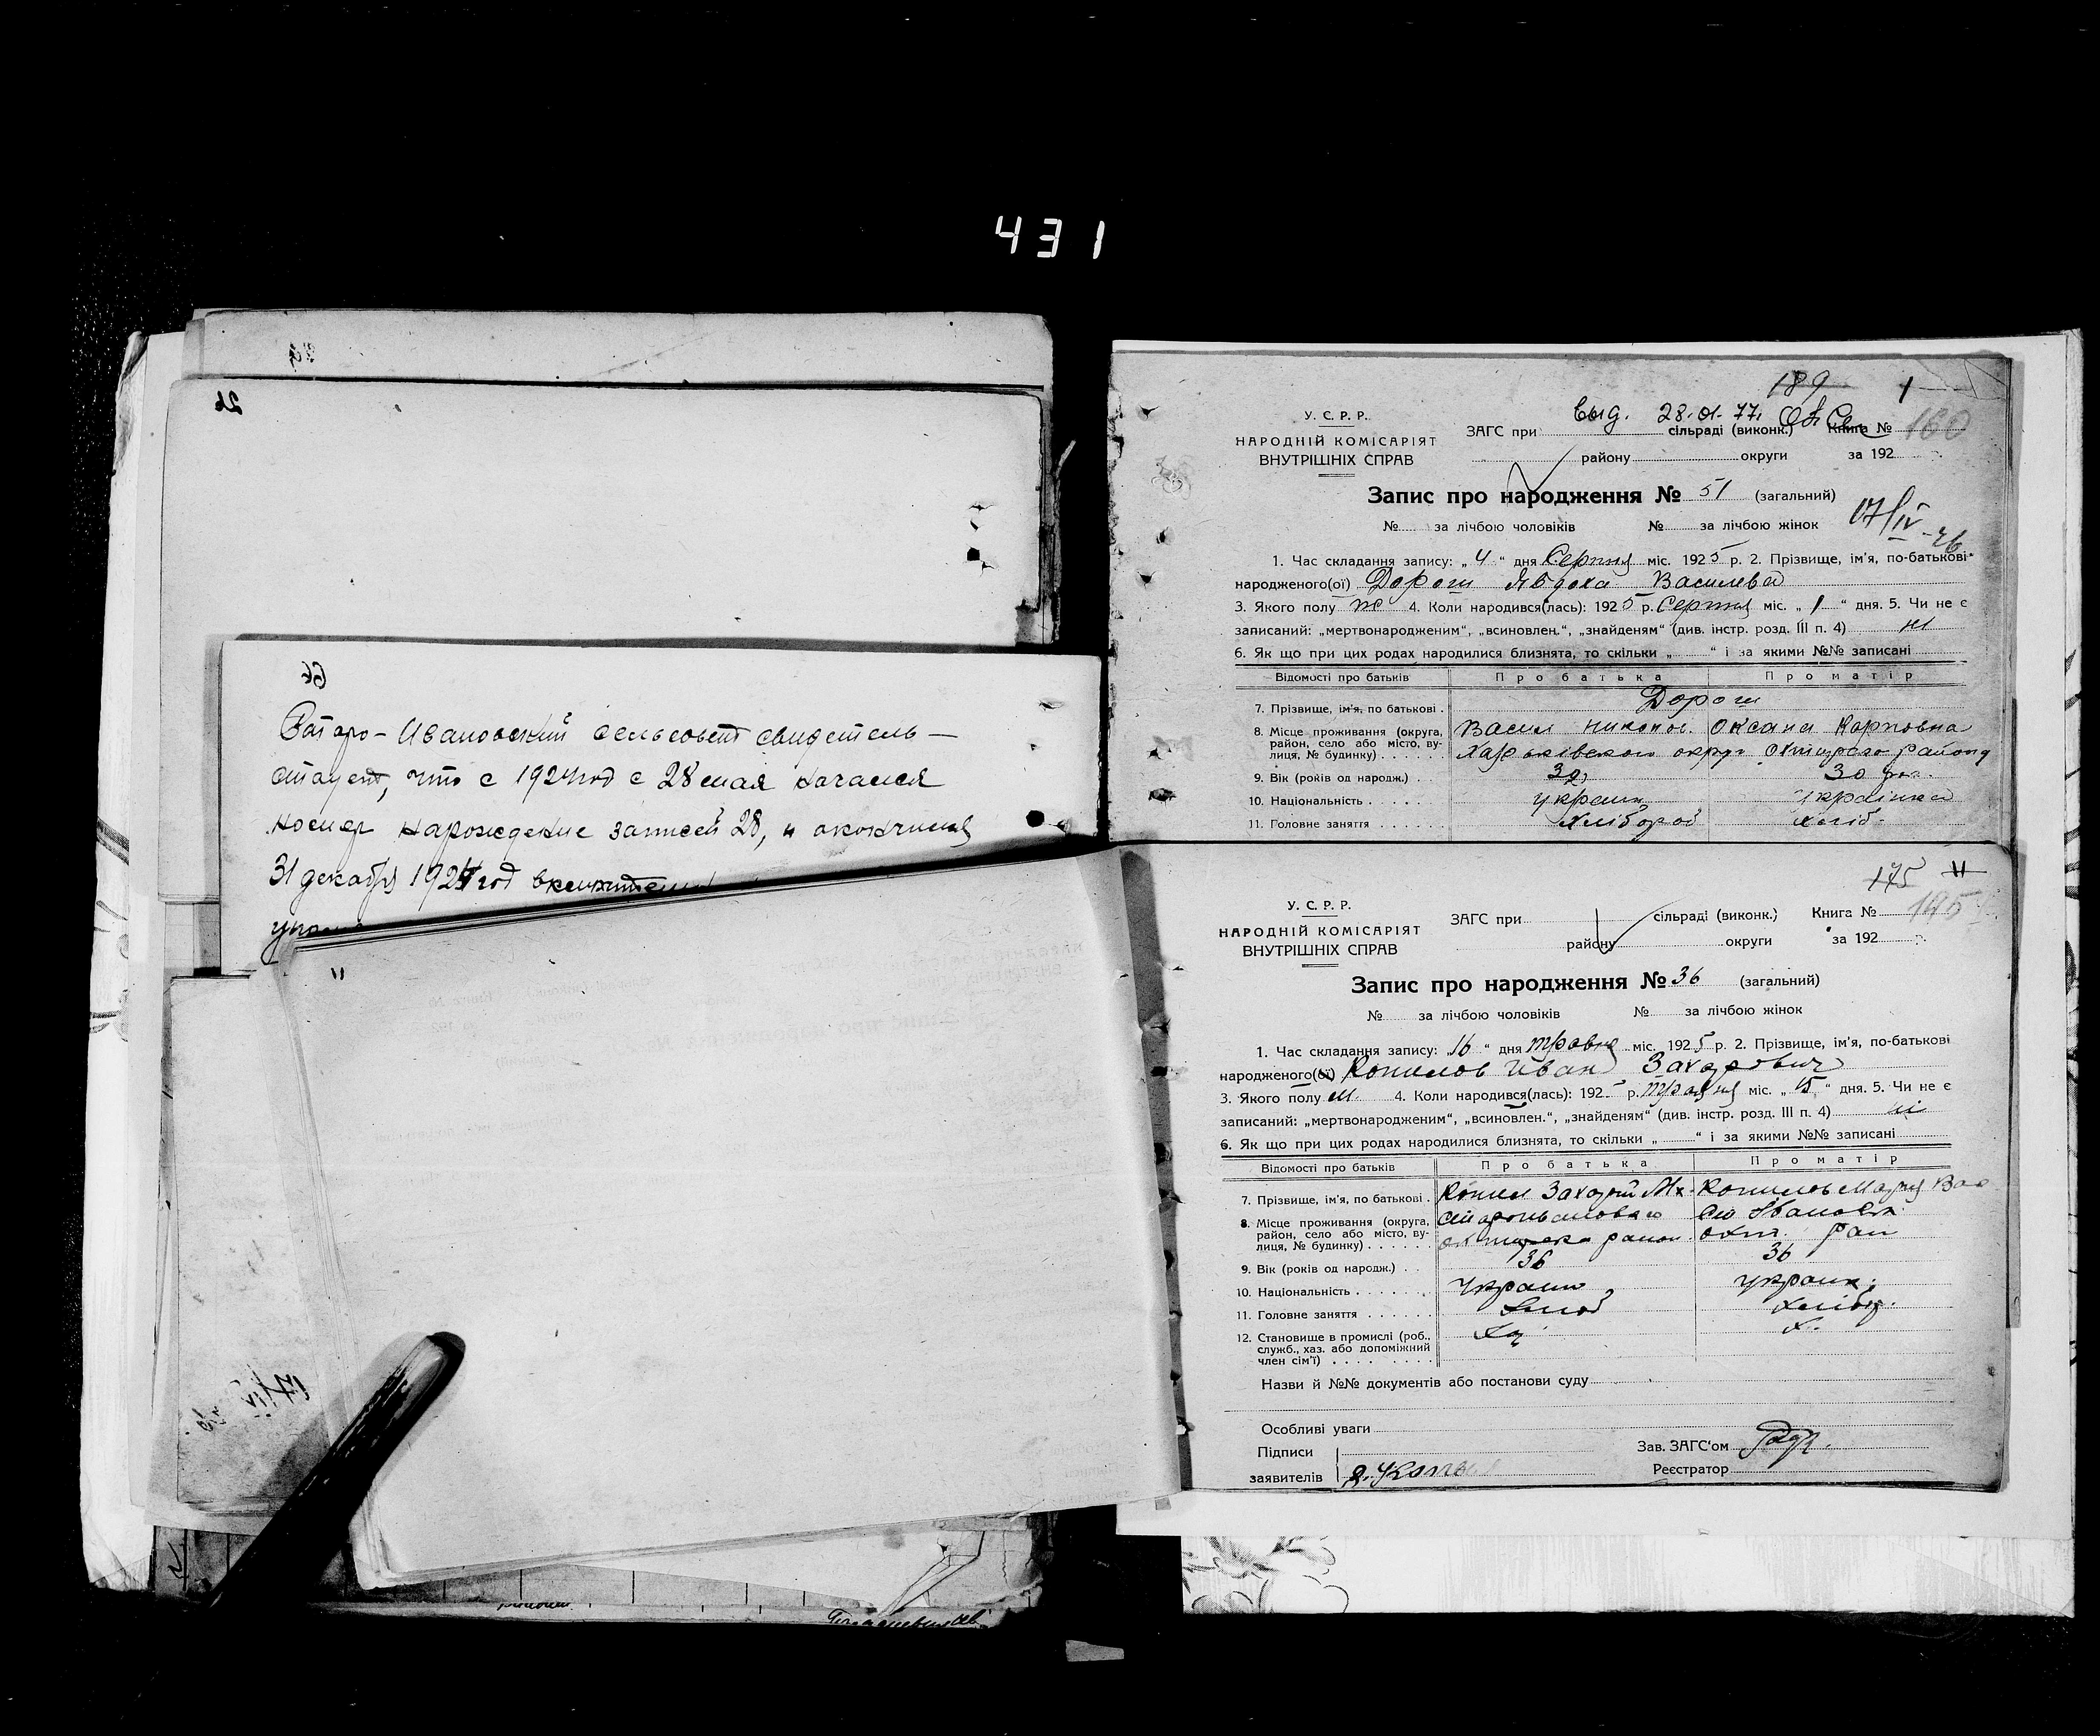 431
26
66
Старо-Ивановский сельсовет свидетель-
ствует, что с 1924 год с 28 мая начался
номер нарождение записей 28, и окончился
31 декабря 1924 год включительно
11
17/IV
189 1
Выд. 28.01.77.
У. С. Р. Р.
НАРОДНІЙ КОМІСАРІЯТ
ВНУТРІШНІХ СПРАВ
ЗАГС при сільраді (виконк.) Книга № 160
району округи за 192
Запис про народження № 51 (загальний)
№ за лічбою чоловіків № за лічбою жінок 17/IV-26
1. Час складання запису: „4“ дня Серпня міс. 1925 р. 2. Прізвище, ім'я, по-батькові
народженого(ої) Дорош Явдоха Василева
3. Якого полу ж 4. Коли народився(лась): 1925 р. Серпня міс. „1“ дня. 5. Чи не є
записаний: „мертвонародженим“, „всиновлен.“, „знайденям“ (див. інстр. розд. III п. 4) ні
6. Як що при цих родах народилися близнята, то скільки „ “ і за якими №№ записані
Відомості про батьків Про батька Про матір
7. Прізвище, ім'я, по батькові Дорош
8. Місце проживання (округа, район, село або місто, вулиця, № будинку) Васил Никонов. Оксана Карповна
Харьківского округ Охтирско району
9. Вік (років од народж.) 32 30 рок.
10. Національність україн українка
11. Головне заняття Хлібороб хліб.
175 11
У. С. Р. Р.
НАРОДНІЙ КОМІСАРІЯТ
ВНУТРІШНІХ СПРАВ
ЗАГС при сільраді (виконк.) Книга № 195
району округи за 192 р.
Запис про народження № 36 (загальний)
№ за лічбою чоловіків № за лічбою жінок
1. Час складання запису: 16 “ дня травня міс. 1925 р. 2. Прізвище, ім'я, по-батькові
народженого(ої) Копилов Иван Захарович
3. Якого полу м. 4. Коли народився(лась): 192 р. травня міс. „15“ дня. 5. Чи не є
записаний: „мертвонародженим“, „всиновлен.“, „знайденям“ (див. інстр. розд. III п. 4) ні
6. Як що при цих родах народилися близнята, то скільки „ “ і за якими №№ записані
Відомості про батьків Про батька Про матір
7. Прізвище, ім'я, по батькові Копил Захарій Мх. Копилов Мария Вас
8. Місце проживання (округа, район, село або місто, вулиця, № будинку) Ст Івановк
охтирска район. охт. рай
9. Вік (років од народж.) 36 36
10. Національність Украин украин.
11. Головне заняття хлібор.
12. Становище в промислі (роб., служб., хаз. або допоміжний член сім'ї) Хаз х.
Назви й №№ документів або постанови суду
Особливі уваги
Підписи
заявителів
Зав. ЗАГС'ом
Реєстратор